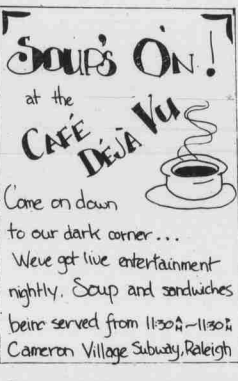 SOUP'S ON!
at the
CAFÉ
DÉJÀ VU
Come on down
to our dark corner...
We've got live entertainment
nightly. Soup and sandwiches
being served from 11:30 AM~11:30 PM
Cameron Village Subway, Raleigh